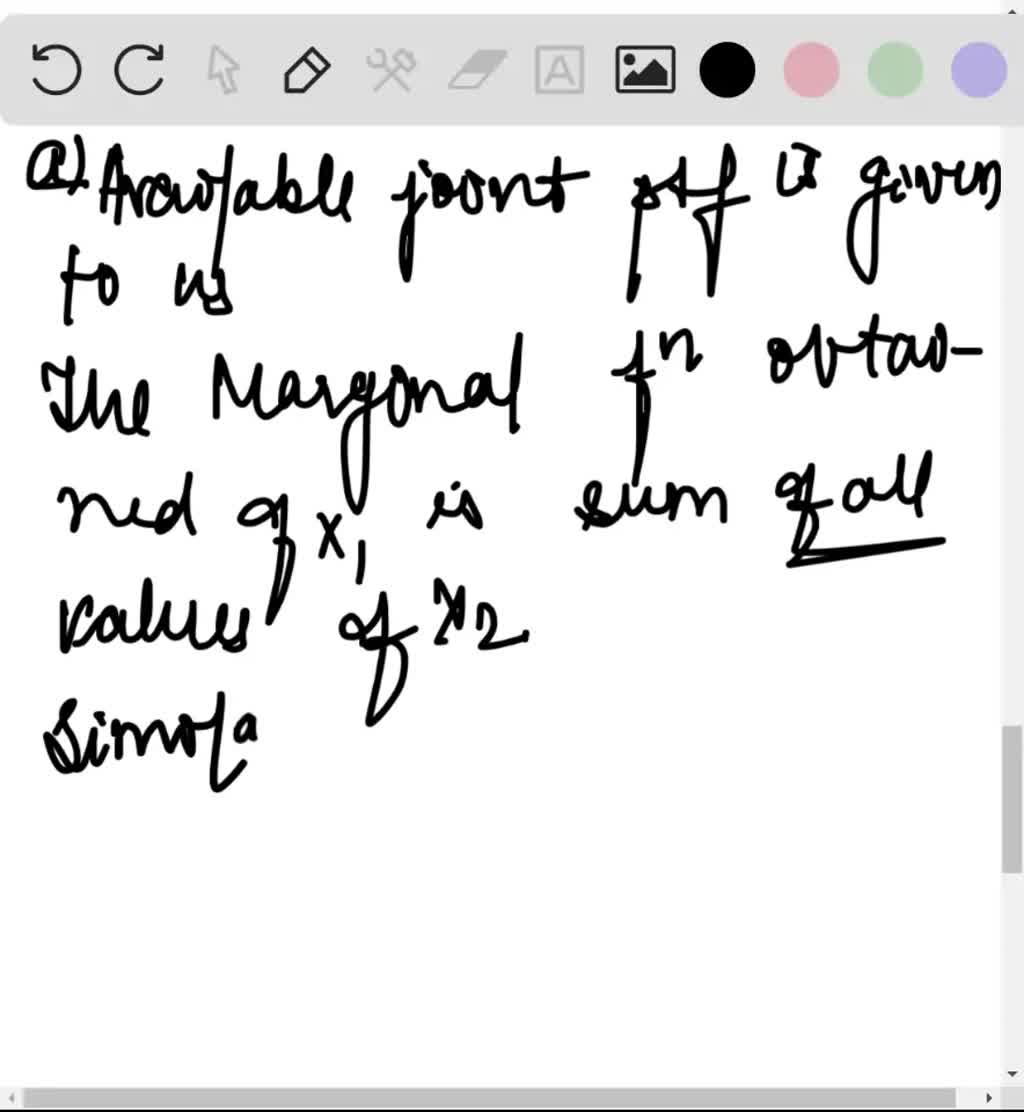 a) Available joint pdf is given
to us
The Marginal fn obtai-
ned of x1 is sum of all
values of x2
Simila